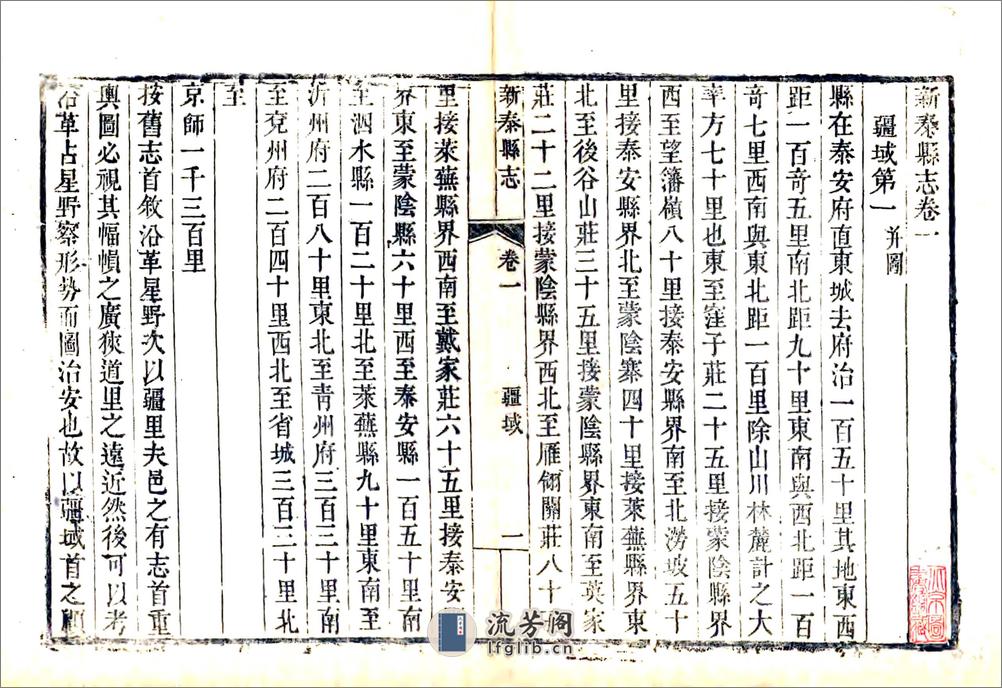 新泰縣志卷一
疆域第一 并圖
縣在泰安府直東城去府治一百五十里其地東西
距一百奇五里南北距九十里東南與西北距一百
奇七里西南與東北距一百里除山川林麓計之大
率方七十里也東至窪子莊二十五里接蒙陰縣界
西至望籓嶺八十里接泰安縣界南至北澇坡五十
里接泰安縣界北至蒙陰寨四十里接萊蕪縣界東
北至後谷山莊三十五里接蒙陰縣界東南至英家
莊二十二里接蒙陰縣界西北至雁翎關莊八十
新泰縣志 卷一 疆域 一
里接萊蕪縣界西南至戴家莊六十五里接泰安
界東至蒙陰縣六十里西至泰安縣一百五十里南
至泗水縣一百二十里北至萊蕪縣九十里東南至
沂州府二百八十里東北至靑州府三百三十里
至兗州府二百四十里西北至省城三百二十里北
至
京師一千三百里
按舊志首敘沿革星野次以疆里夫邑之有志首重
輿圖必視其幅幀之廣狹道里之遠近然後可以考
沿革占星野察形勢而圖治安也故以疆域首之
流芳閣
lfglib.cn